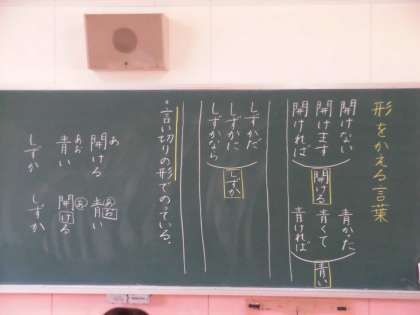 形をかえる言葉
開けない
開けます
開ければ
開ける
青かった
青くて
青ければ
青い
しずかだ
しずかに
しずかなら
しずか
・言い切りの形でのっている。
あ
開ける
あお
青い
しずか
あお
青い
あ
開ける
しずか